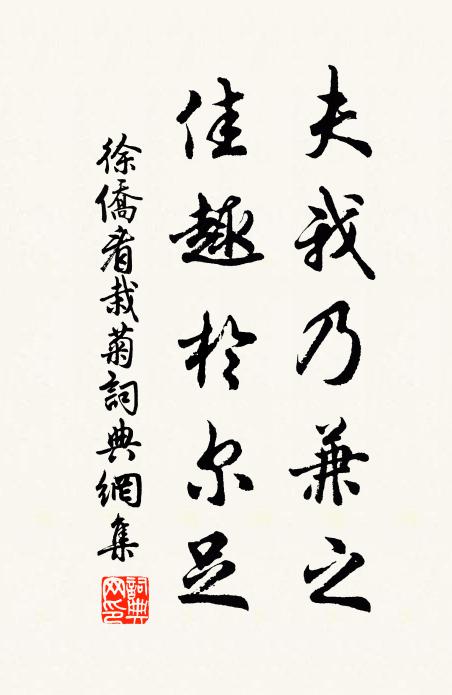 夫我乃兼之
佳趣於尔足
徐僑看栽菊詞典網集
詞典網印